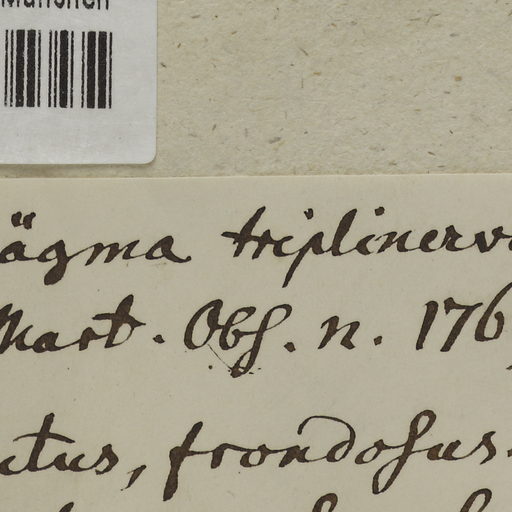 München
ägma triplinerv
Mart. Obs. n. 176
utus, frondosus.